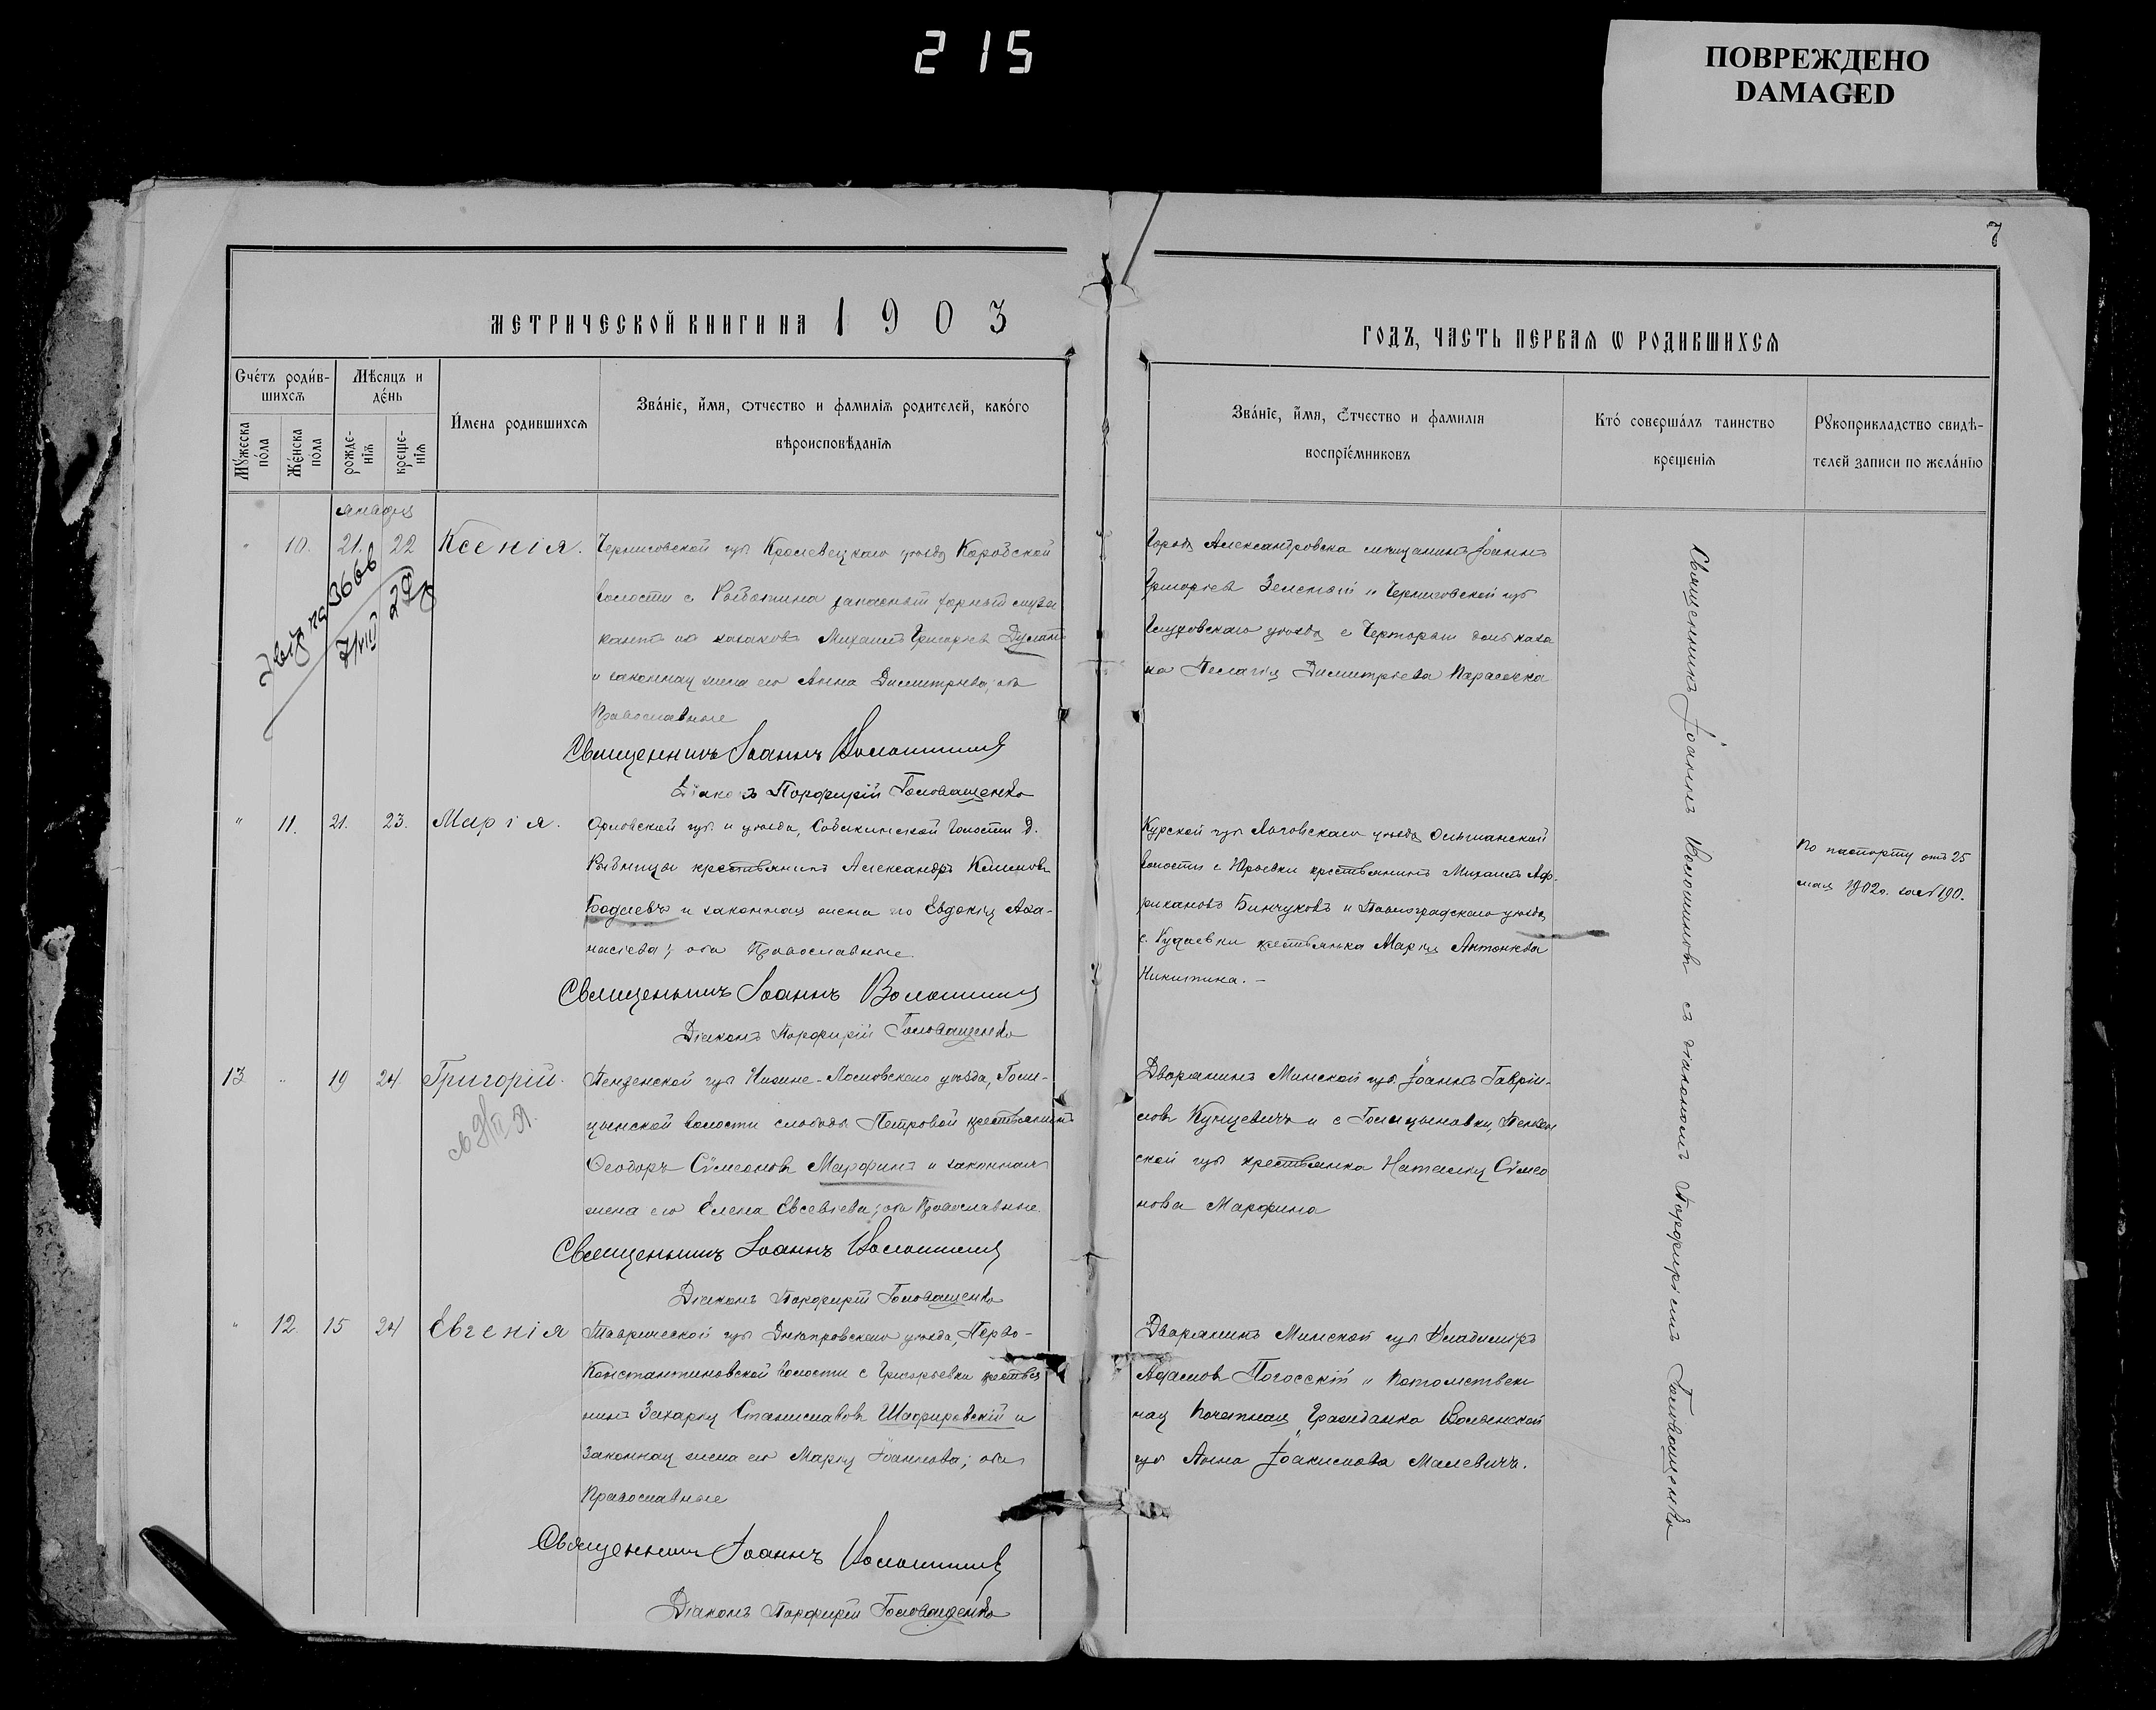 215
ПОВРЕЖДЕНО
DAMAGED
7
МЕТРИЧЕСКОЙ КНИГИ НА 1903
ГОДЪ, ЧАСТЬ ПЕРВАѦ Ѡ РОДИВШИХСѦ
Счéтъ роди́в-
шихсѧ
Мѣ́сяцъ и
дéнь
Мꙋ́жеска
по́ла
Жéнска
по́ла
рожде-
нїѧ
креще-
нїѧ
И́мена родившихсѧ
Зва́нїе, и́мя, ѻтчество и фамилїѧ родителей, како́го
вѣроисповѣ́данїѧ
Зва́нїе, и́мя, ѻтчество и фамилїя
воспрїéмниковъ
Кто́ соверша́лъ таинство
крещенїѧ
Рꙋкоприкладство свидѣ-
телей записи по жела́нїю
января
10. 21. 22 Ксенія.
Черниговской губ Кролевецкаго уѣзда Коробской
волости с Рыботина запасный горный музы
кантъ из казаковъ Михаилъ Григорьев
и законная жена его Анна Димитріева, оба
Православные
Священникъ Іоаннъ Волошинов
Діаконъ Порфирій Головащенко
Города Александровска мещанинъ Іоаннъ
Григорьев Зеленскій и Черниговской губ
Глуховскаго уѣзда с Черториги дочь каза
ка Пелагія Димитріева
" 11. 21. 23. Марія.
Орловской губ. и уѣзда, Собакинской волости д.
Рыбницы крестьянинъ Александръ
и законная жена его Евдокія Аѳа-
насіева; оба Православные
Священникъ Іоаннъ Волошинов
Діаконъ Порфирій Головащенко
Курской губ Льговскаго уѣзда Ольшанской
волости с Юрьевки крестьянинъ Михаилъ Аф-
рикановъ Бинчуковъ и Павлоградскаго уѣзда
крестьянка Марія Антоніева
Никитина. -
По паспорту отъ 25
мая 1902г. за №190.
13 " 19 24 Григорій.
Пензенской губ Нижне-Ломовскаго уѣзда, Голи-
цынской волости слободы Петровой крестьянинъ
Ѳеодоръ Сѵмеоновъ Марфинъ и законная
жена его Елена Евсевіева; оба Православные.
Священникъ Іоаннъ Волошинов
Діаконъ Порфирій Головащенко
Дворянинъ Минской губ. Іоаннъ Гаврии-
ловъ Кунцевичъ и с Голицыновки, Пензен
ской губ крестьянка Наталия Сѵмео
нова Марфина
" 12. 15 24 Евгенія
Таврической губ Днѣпровскаго уѣзда, Перво-
Константиновской волости с Григорьевки крестья
нинъ Захарій Станиславовъ Шафировскій и
законная жена его Марія Іоаннова; оба
Православные
Священникъ Іоаннъ Волошинов
Діаконъ Порфирій Головащенко
Дворянинъ Минской губ Владиміръ
Адамовъ Погосскій и Потомствен
ная Почетная Гражданка Волынской
губ Анна Іоакимова Малевичъ.
Священникъ Іоаннъ Волошиновъ съ діакономъ Порфиріемъ Головащенко